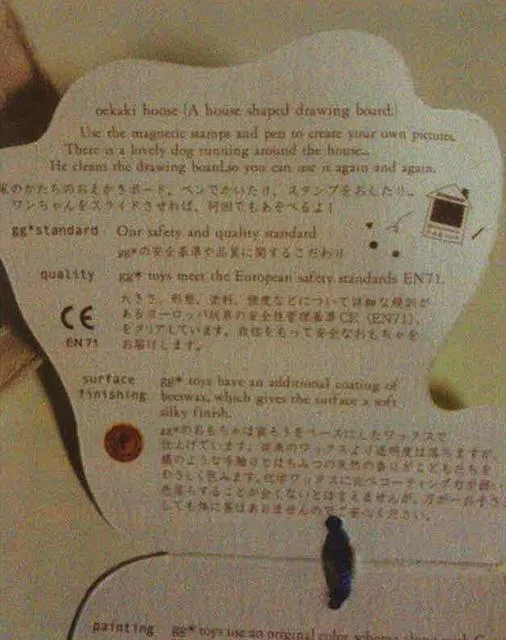 oekaki house (A house shaped drawing board.)
Use the magnetic stamps and pen to create your own pictures.
There is a lovely dog running around the house...
He cleans the drawing board,so you can use it again and again.
家のかたちのおえかきボード。ペンでかいたり、スタンプをおしたり…
ワンちゃんをスライドさせれば、何回でもあそべるよ!
gg*standard Our safety and quality standard
gg*の安全基準や品質に関するこだわり
quality gg* toys meet the European safety standards EN71.
大きさ、形態、塗料、強度などについて詳細な規則が
あるヨーロッパ玩具の安全性管理基準CE (EN71)、
をクリアしています。自信をもって安全なおもちゃを
お届けします。
CE
EN71
surface finishing gg* toys have an additional coating of
beeswax, which gives the surface a soft
silky finish.
gg*のおもちゃは蜜ろうをベースにしたワックスで
仕上げています。従来のワックスより透明度は落ちますが、
のような手触りとはちみつの天然の香りがこどもたちを
やさしく包みます。化学ワックスに比べコーティング力が弱い
色落ちすることが全くないとは言えませんが、万が一お子さ
しても体に害はありませんのでご安心ください。
painting gg* toys use an original color